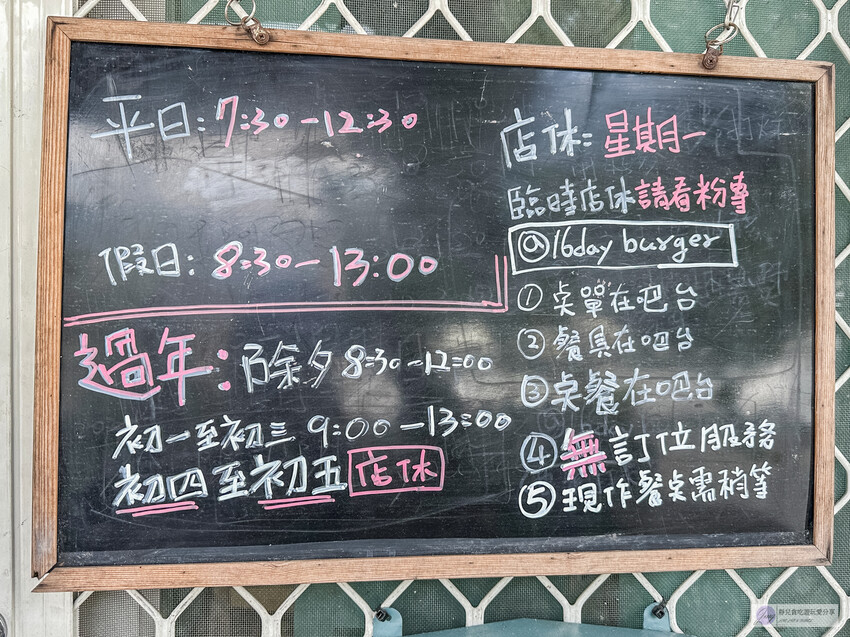 平日：7:30－12:30
假日：8:30－13:00
過年：除夕 8:30－12:00
初一至初三 9:00－13:00
初四至初五 店休
店休：星期一
臨時店休請看粉專
@16day burger
① 桌單在吧台
② 餐具在吧台
③ 桌餐在吧台
④ 無訂位服務
⑤ 現作餐桌需稍等
靜兒貪吃遊玩愛分享